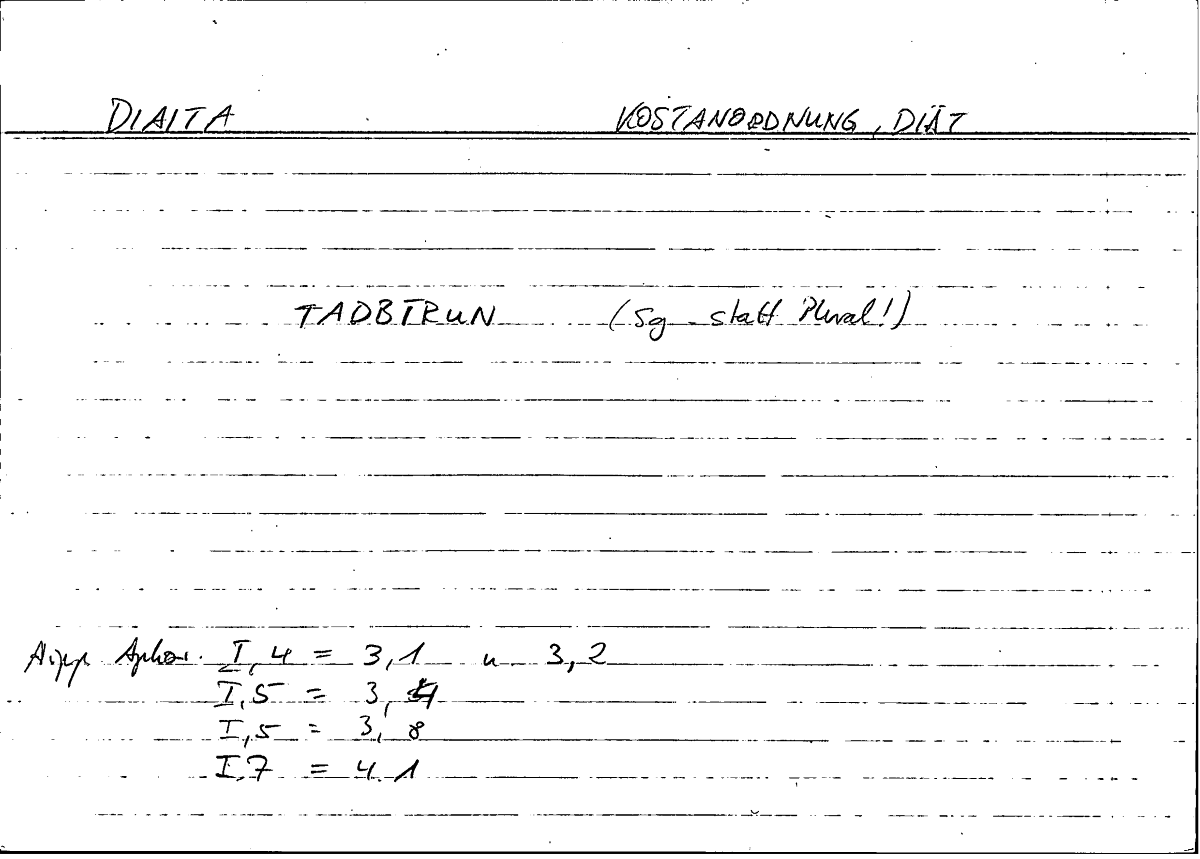 DIAITA KOSTANORDNUNG, DIÄT
TADBIRUN (Sg. statt Plural!)
Hipp Aphor. I,4 = 3,1 u 3,2
I,5 = 3,
I,5 = 3, 8
I,7 = 4.1